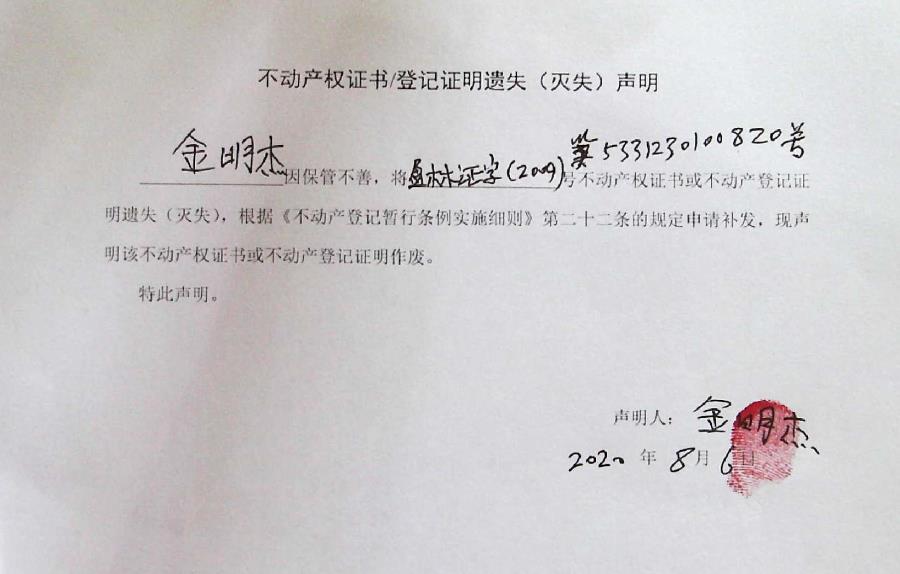 不动产权证书/登记证明遗失（灭失）声明
金明杰因保管不善，将盈林证字(2009)第5331230100820号号不动产权证书或不动产登记证
明遗失（灭失），根据《不动产登记暂行条例实施细则》第二十二条的规定申请补发，现声
明该不动产权证书或不动产登记证明作废。
特此声明。
声明人：金明杰
2020年8月6日